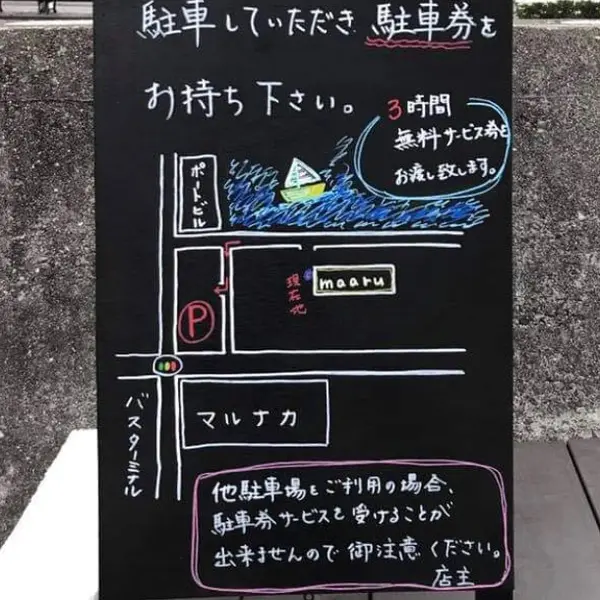 駐車していただき 駐車券を
お持ち下さい。
3時間
無料サービス券を
お渡し致します。
ポートビル
現在地
maaru
P
マルナカ
バスターミナル
他駐車場をご利用の場合、
駐車券サービスを受けることが
出来ませんので御注意ください。
店主